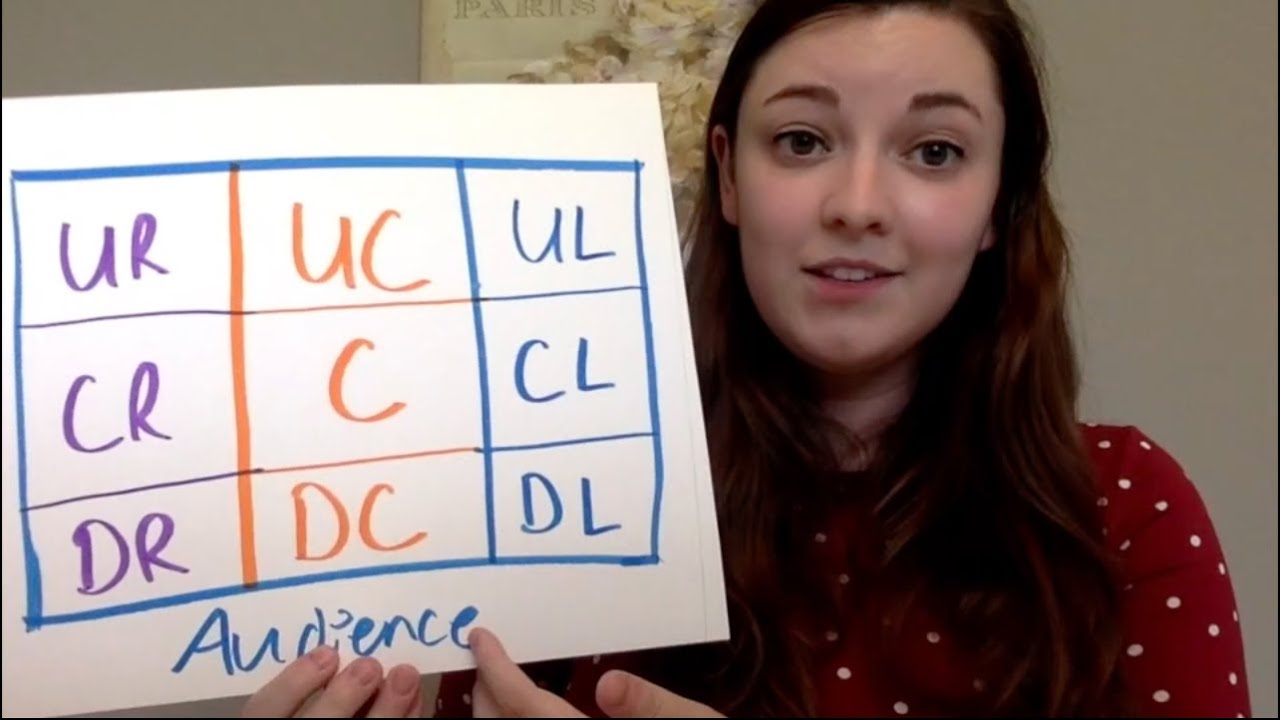 PARIS
UR UC UL
CR C CL
DR DC DL
Audience